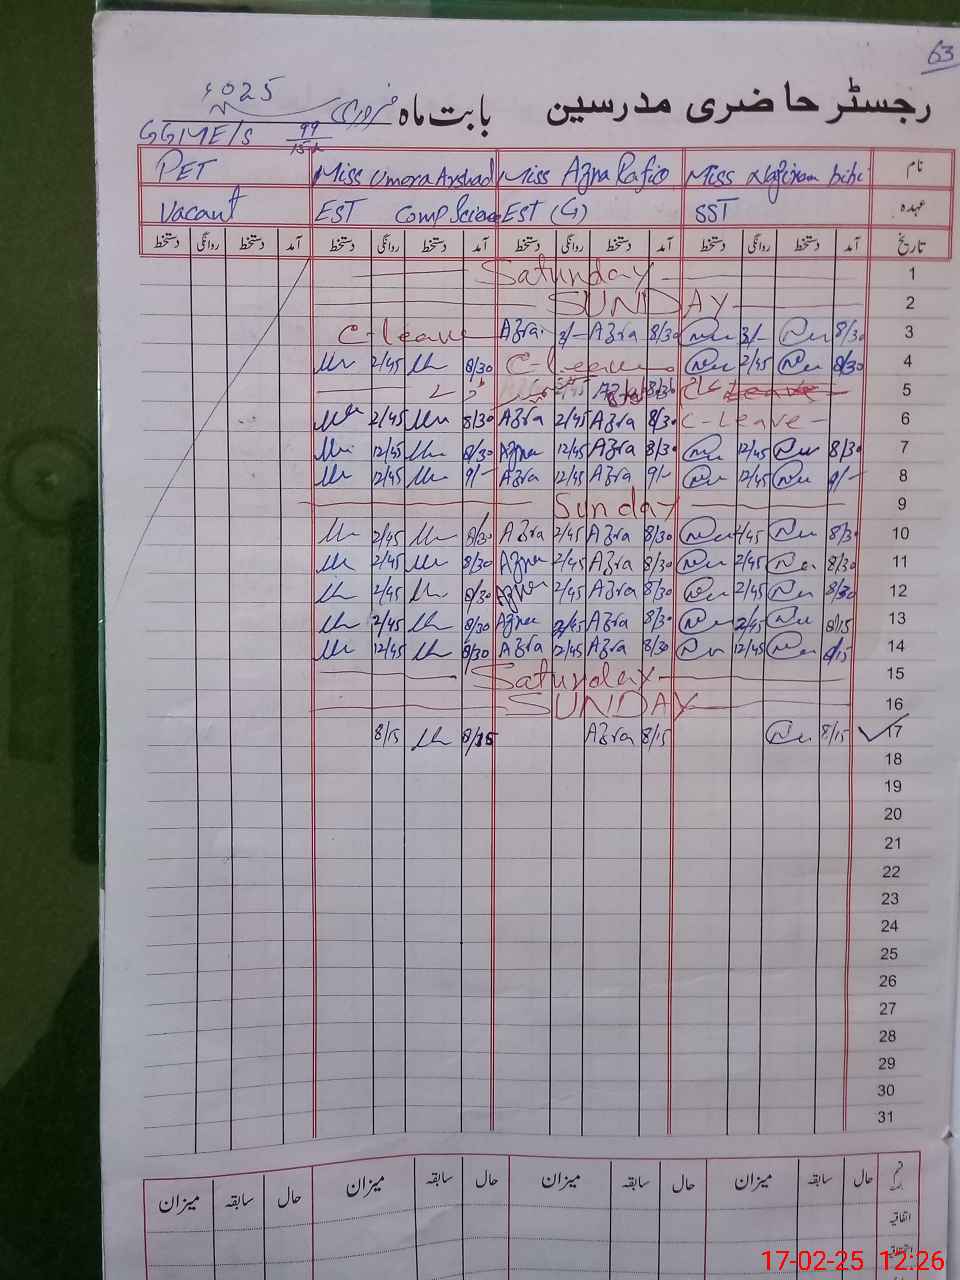 63
رجسٹر حاضری مدرسین بابت ماہ فروری 2025ء
GGMES 99/15-L
نام Miss Naziran bibi Miss Azra Rafiq Miss Umera Arshad PET
عہدہ SST EST (G) EST Comp Science Vacant
تاریخ آمد دستخط روانگی دستخط آمد دستخط روانگی دستخط آمد دستخط روانگی دستخط آمد دستخط روانگی دستخط
1 Saturday
2 SUNDAY
3 8/30 3/- 8/30 Azra 3/- Azra C-leave
4 8/30 2/45 C-leave 8/30 2/45
5 Leave
6 C-Leave 8/30 Azra 2/45 Azra 8/30 2/45
7 8/30 12/45 8/30 Azra 12/45 Azra 8/30 12/45
8 9/- 12/45 9/- Azra 12/45 Azra 9/- 12/45
9 Sunday
10 8/30 2/45 8/30 Azra 2/45 Azra 8/30 2/45
11 8/30 2/45 8/30 Azra 2/45 Azra 8/30 2/45
12 8/30 2/45 8/30 Azra 2/45 Azra 8/30 2/45
13 8/15 2/45 8/30 Azra 2/45 Azra 8/30 2/45
14 8/15 12/45 8/30 Azra 12/45 Azra 8/30 12/45
15 Saturday
16 SUNDAY
17 8/15 8/15 Azra 8/15
18
19
20
21
22
23
24
25
26
27
28
29
30
31
حال سابقہ میزان حال سابقہ میزان حال سابقہ میزان حال سابقہ میزان
اتفاقیہ
17-02-25 12:26